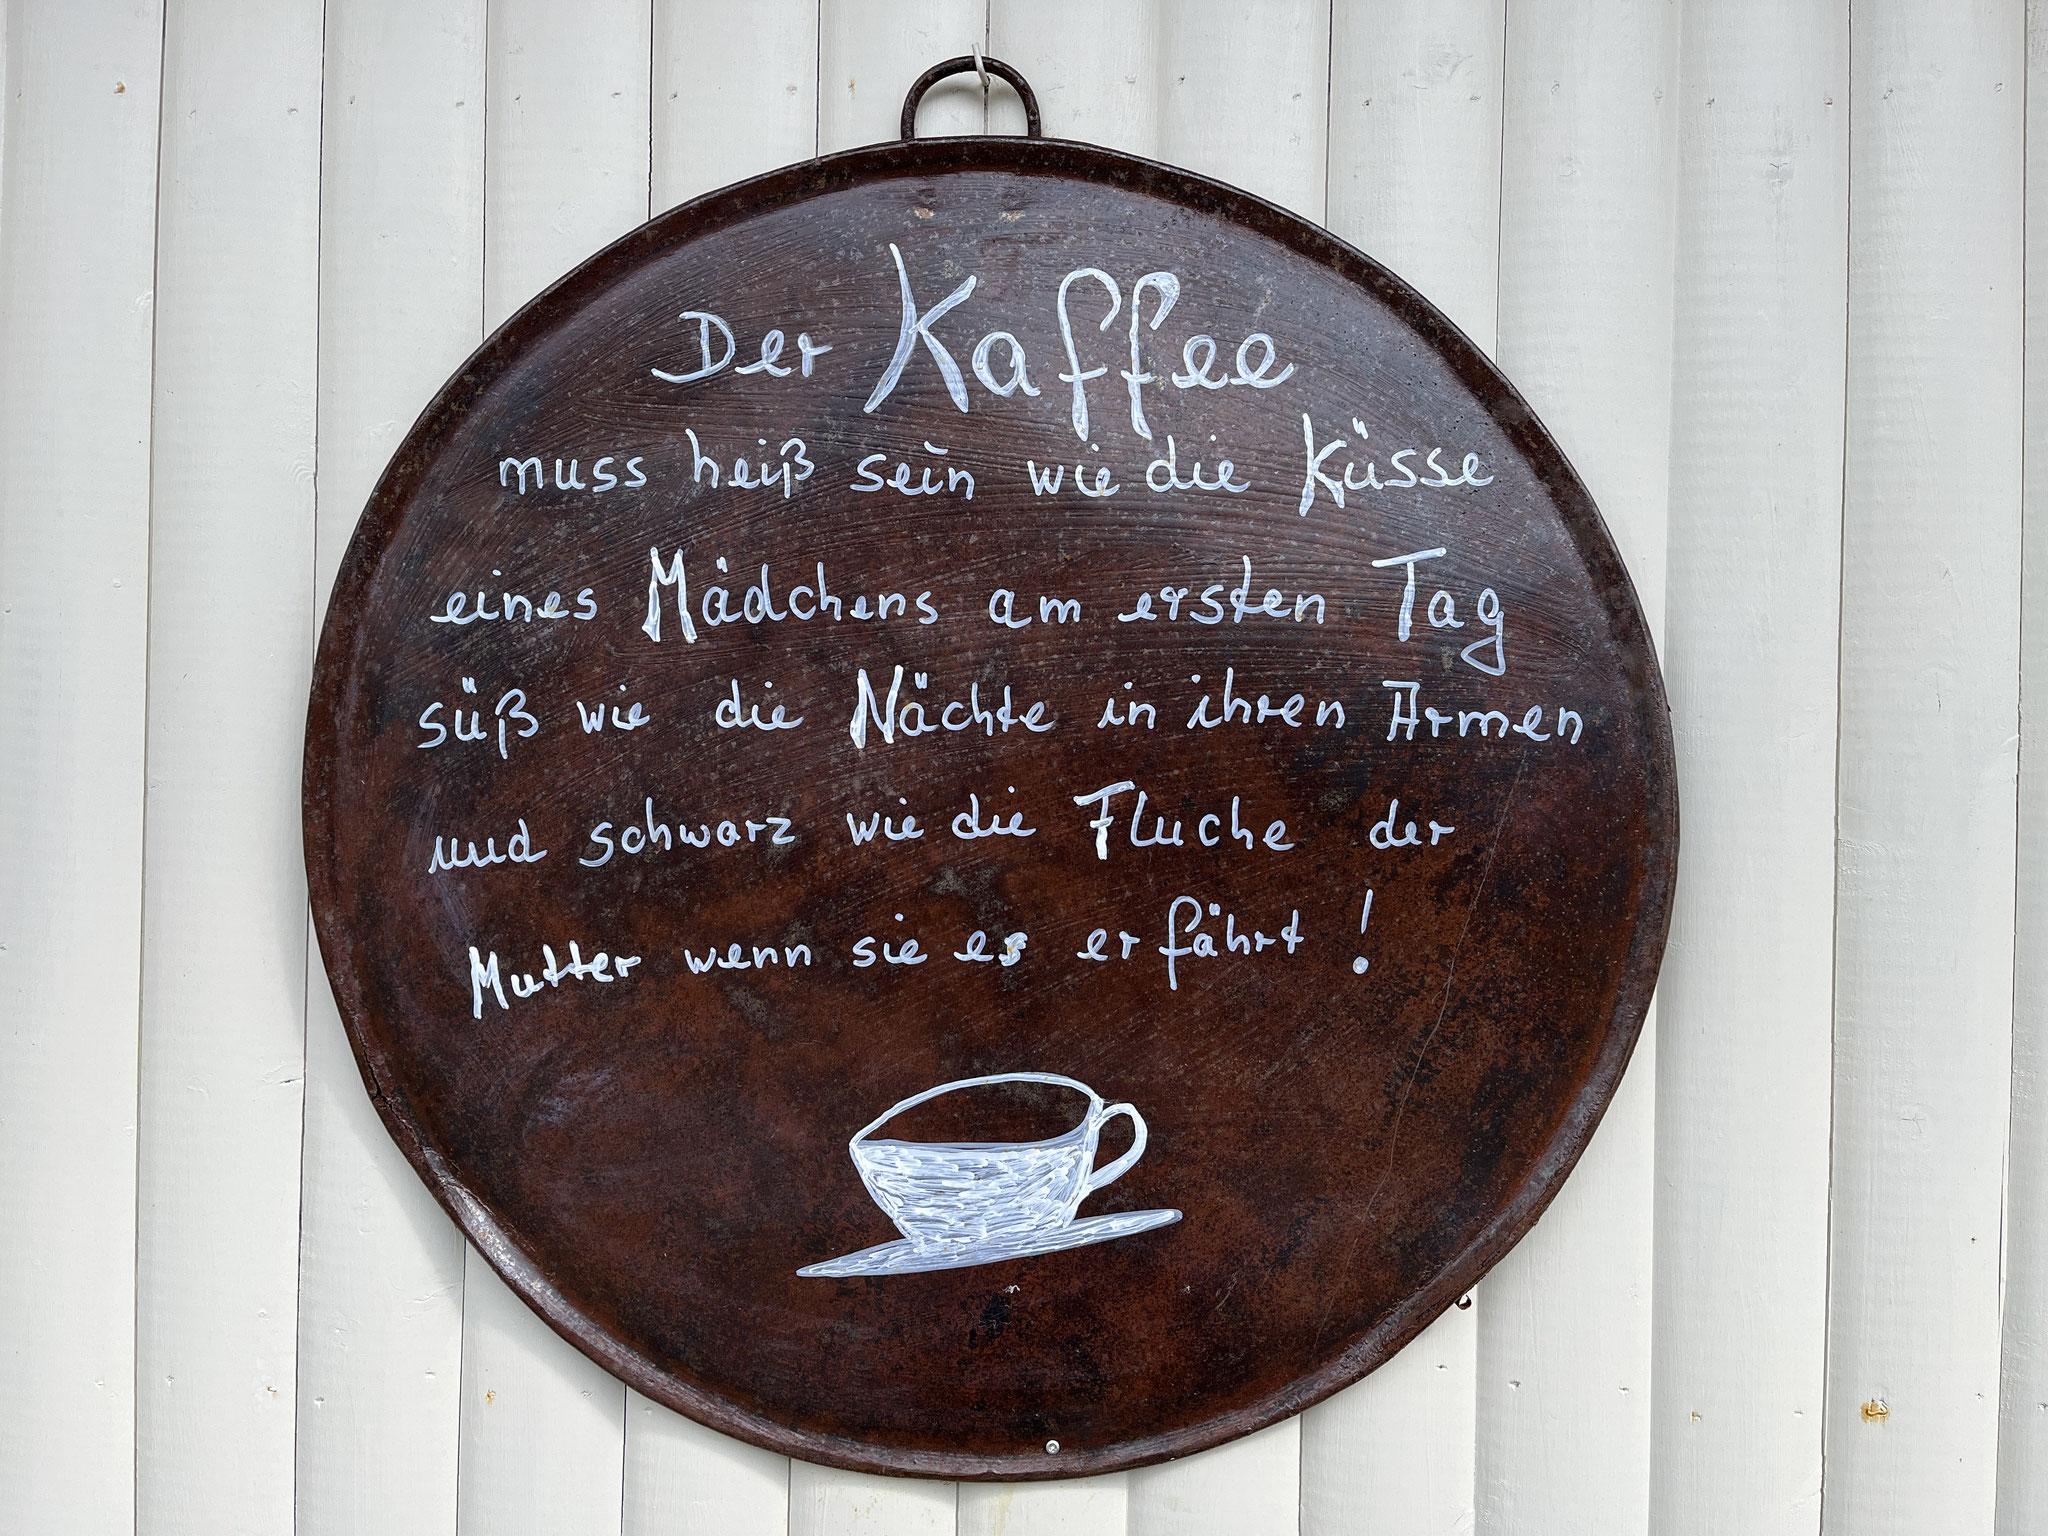 Der Kaffee
muss heiß sein wie die Küsse
eines Mädchens am ersten Tag
süß wie die Nächte in ihren Armen
und schwarz wie die Fluche der
Mutter wenn sie es erfährt!